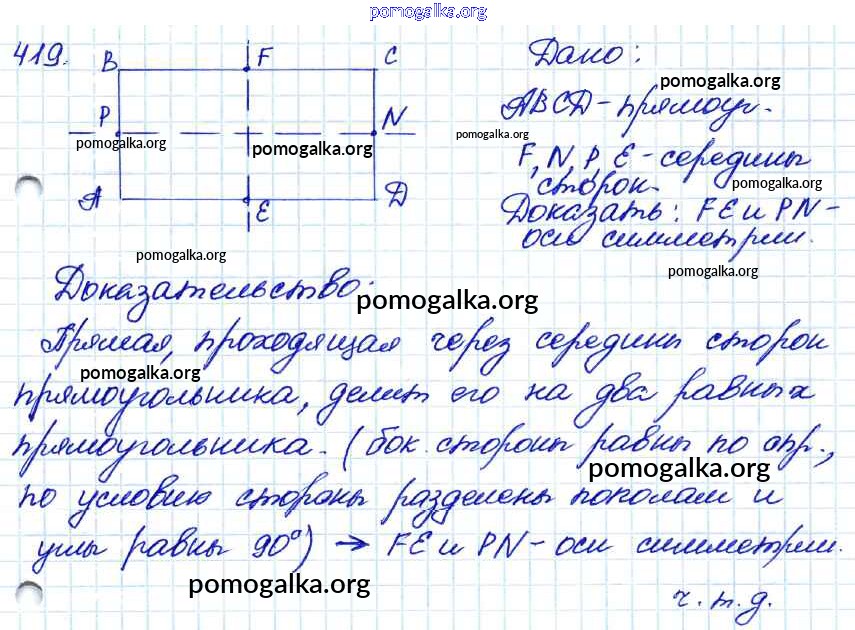 pomogalka.org
419.
B F C
P N
A E D
pomogalka.org
pomogalka.org
Дано:
pomogalka.org
ABCD - прямоуг.
pomogalka.org
F, N, P, E - середины
сторон.
pomogalka.org
Доказать: FE и PN -
оси симметрии.
pomogalka.org
pomogalka.org
Доказательство:
pomogalka.org
Прямая, проходящая через середины сторон
pomogalka.org
прямоугольника, делит его на два равных
прямоугольника. (бок. стороны равны по опр.,
pomogalka.org
по условию стороны разделены пополам и
углы равны 90°) → FE и PN - оси симметрии.
pomogalka.org
ч. т. д.